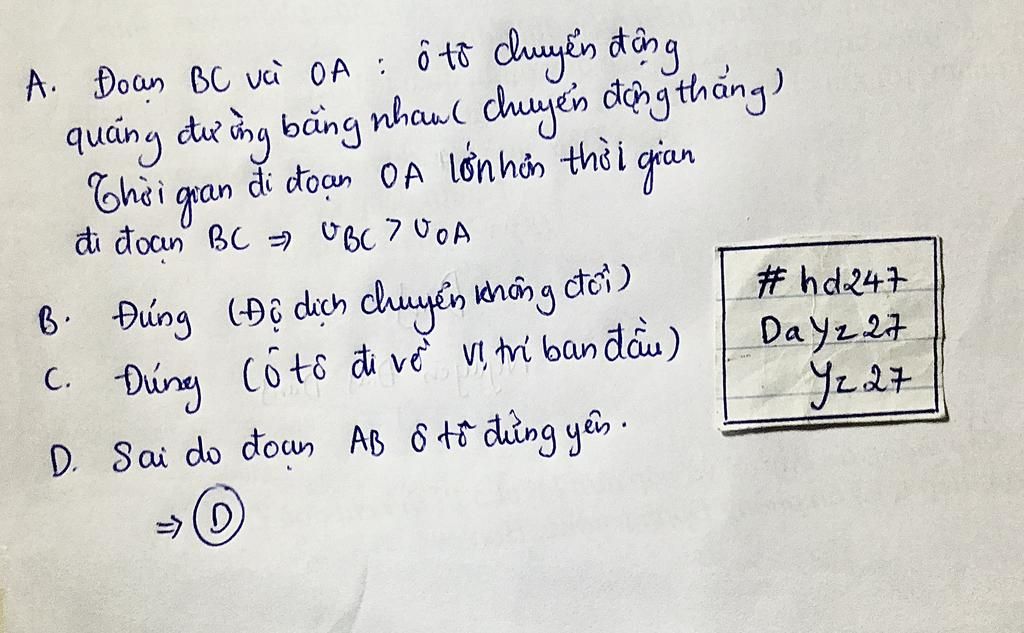 A. Đoạn BC và OA : ô tô chuyển động
quãng đường bằng nhau ( chuyển động thẳng )
Thời gian đi đoạn OA lớn hơn thời gian
đi đoạn BC ⇒ v_BC > v_OA
B. Đúng (Độ dịch chuyển không đổi)
C. Đúng (Ô tô đi về vị trí ban đầu)
D. Sai do đoạn AB ô tô đứng yên.
⇒ D
# hd247
DaYz27
Yz27